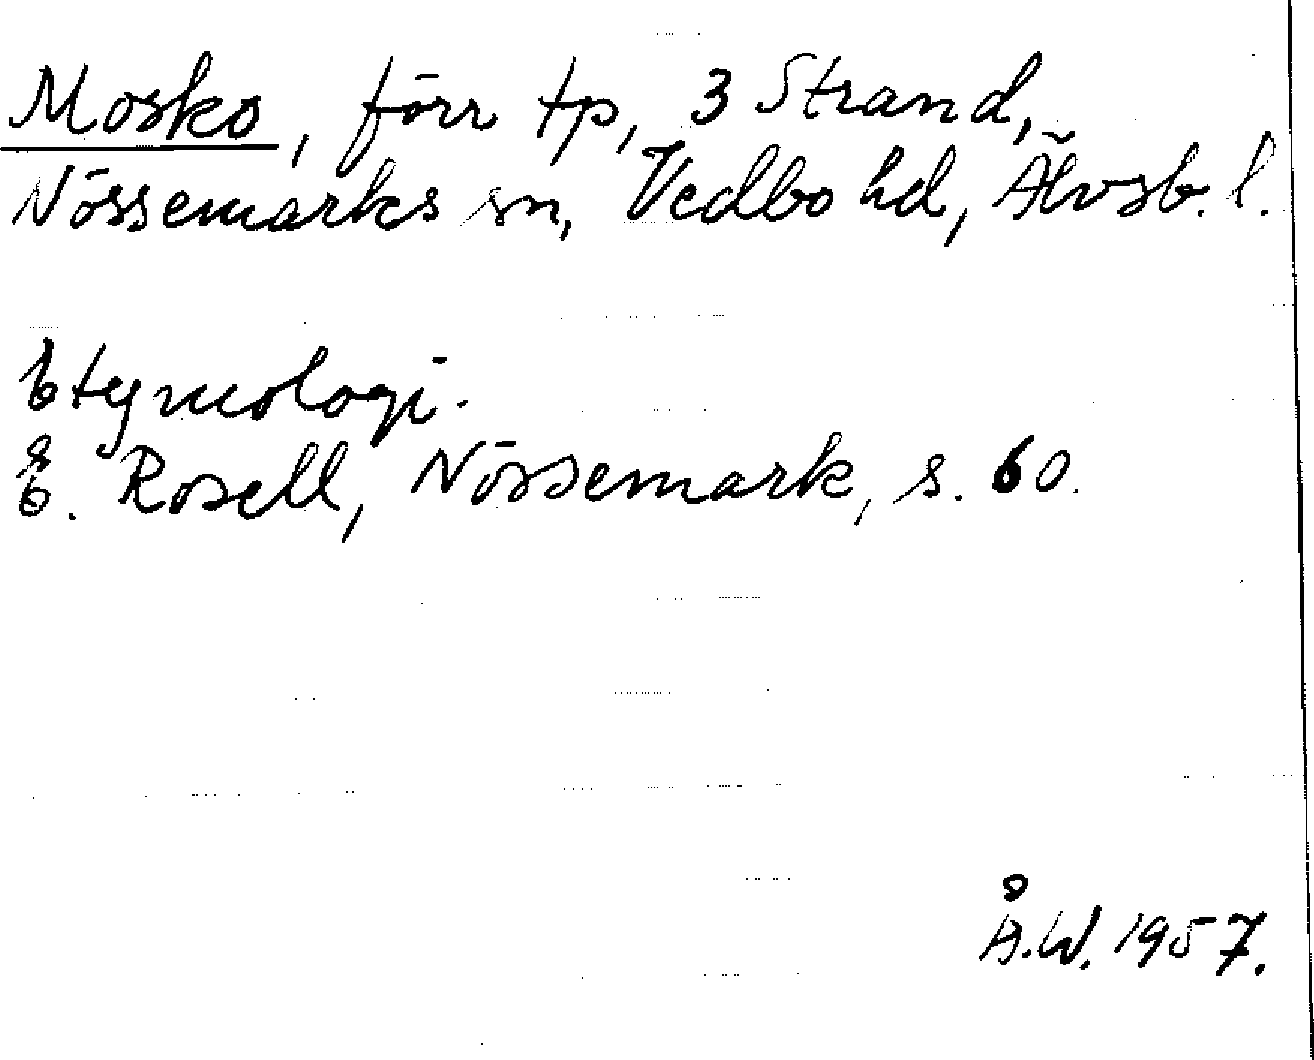 Mosko, förr tp, 3 Strand,
Nössemarks sn, Vedbo hd, Älvsb. l.
Etymologi.
E. Rosell, Nössemark, s. 60.
Å.W. 1957.